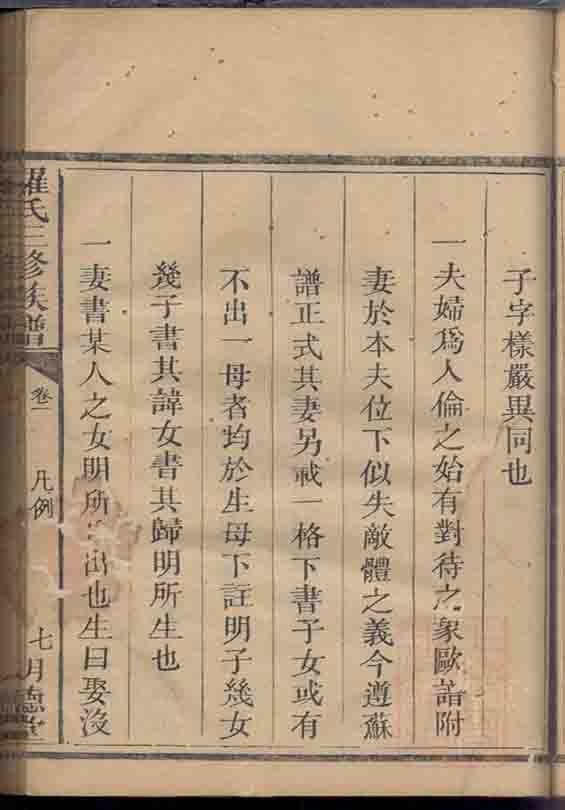 子字樣嚴異同也
一夫婦爲人倫之始有對待之象歐譜附
妻於本夫位下似失敵體之義今遵蘇
譜正式其妻另載一格下書子女或有
不出一母者均於生母下註明子幾女
幾子書其諱女書其歸明所生也
一妻書某人之女明所出也生曰娶沒
羅氏三修族譜
卷一
凡例
七 德堂